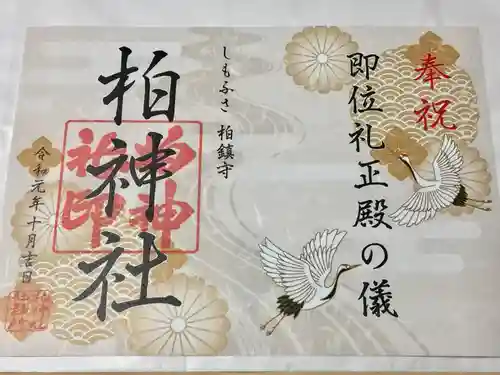 奉祝
即位礼正殿の儀
しもふさ 柏鎮守
柏神社
令和元年十月吉日